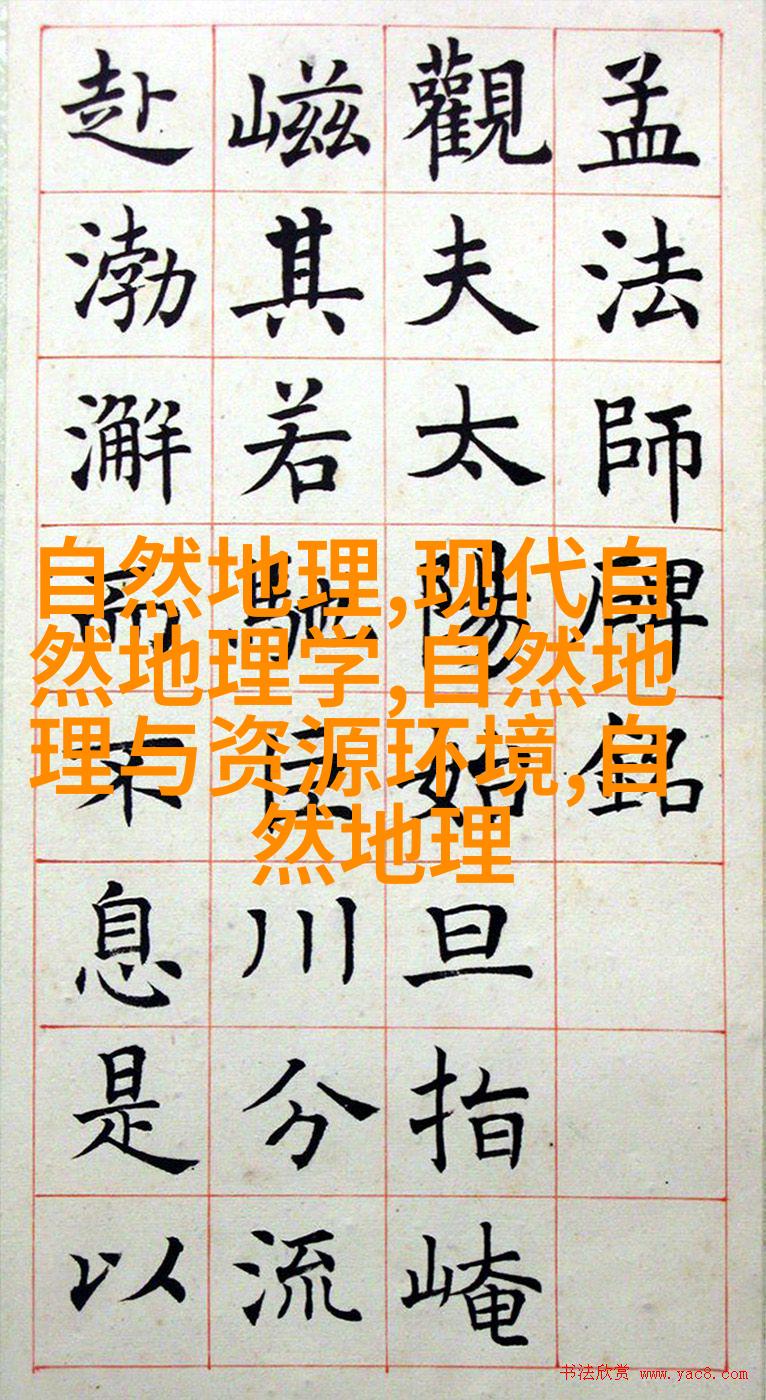 孟法師碑銘
觀夫太陽始旦指崦
嵫其若馳川分流
赴渤澥而不息是以
自然地理,现代自
然地理学,自然地
理与资源环境,自
然地理
书法欣赏 www.yac8.com